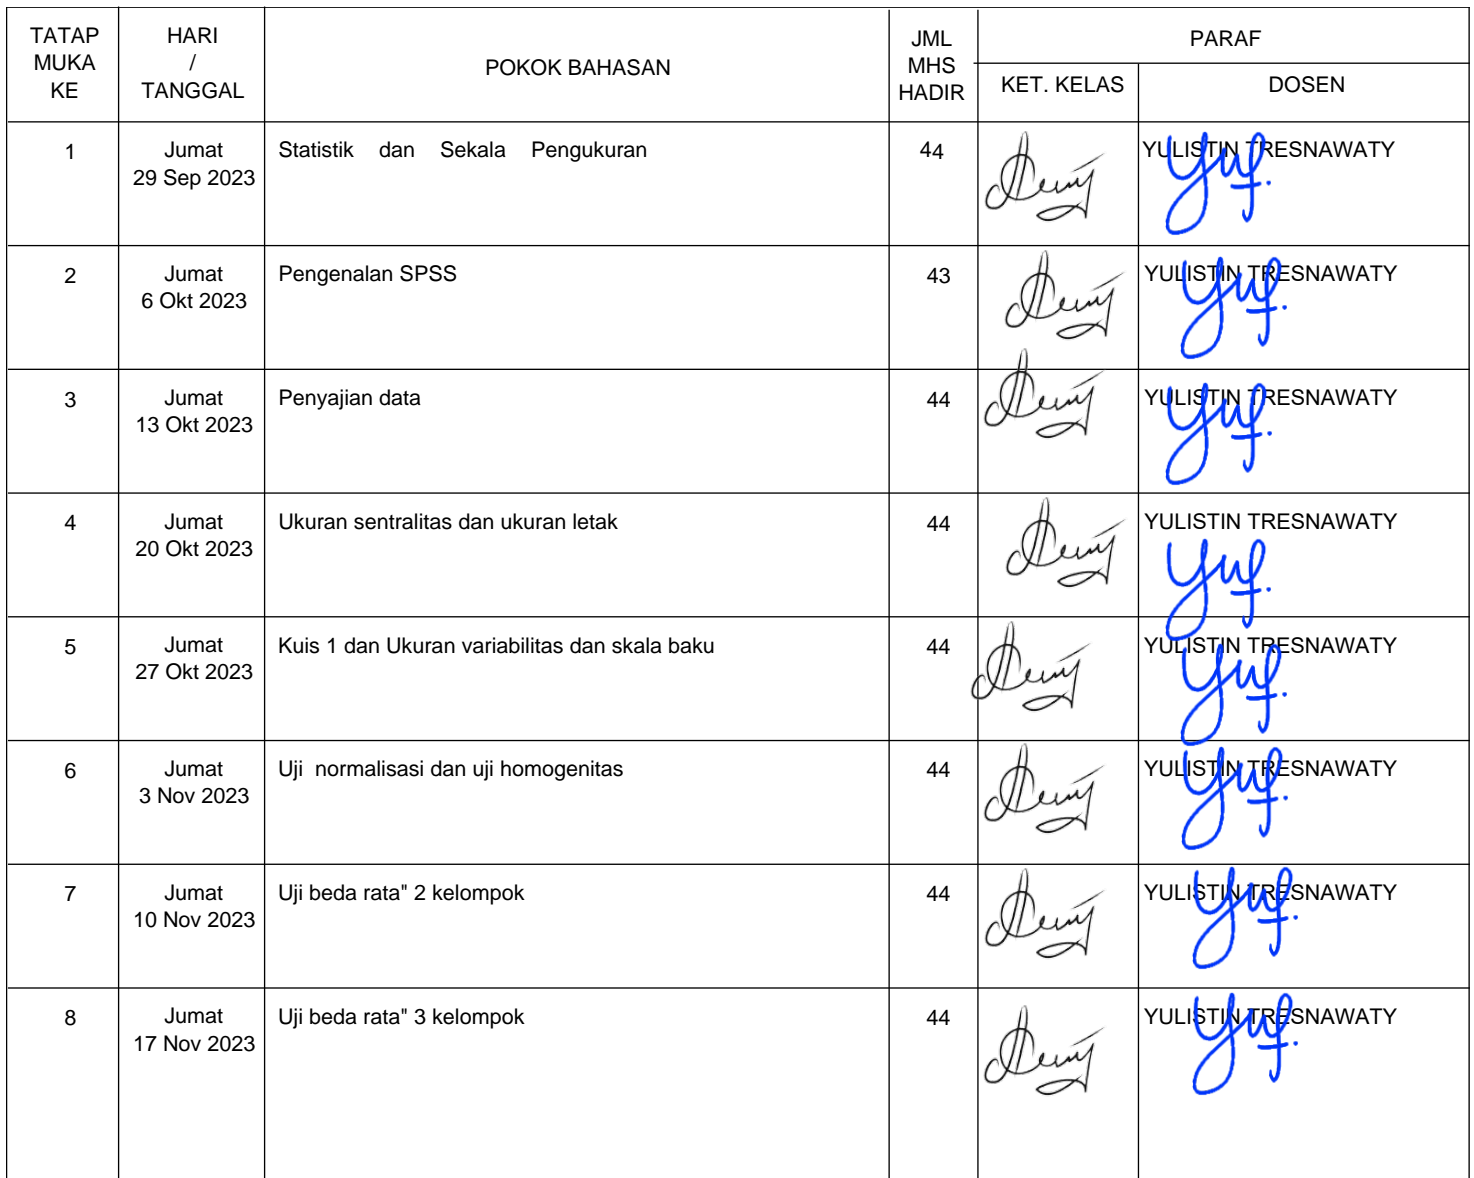 TATAP
MUKA
KE
HARI
/
TANGGAL
POKOK BAHASAN
JML
MHS
HADIR
PARAF
KET. KELAS
DOSEN
1
Jumat
29 Sep 2023
Statistik dan Sekala Pengukuran
44
YULISTIN TRESNAWATY
2
Jumat
6 Okt 2023
Pengenalan SPSS
43
YULISTIN TRESNAWATY
3
Jumat
13 Okt 2023
Penyajian data
44
YULISTIN TRESNAWATY
4
Jumat
20 Okt 2023
Ukuran sentralitas dan ukuran letak
44
YULISTIN TRESNAWATY
5
Jumat
27 Okt 2023
Kuis 1 dan Ukuran variabilitas dan skala baku
44
YULISTIN TRESNAWATY
6
Jumat
3 Nov 2023
Uji normalisasi dan uji homogenitas
44
YULISTIN TRESNAWATY
7
Jumat
10 Nov 2023
Uji beda rata" 2 kelompok
44
YULISTIN TRESNAWATY
8
Jumat
17 Nov 2023
Uji beda rata" 3 kelompok
44
YULISTIN TRESNAWATY